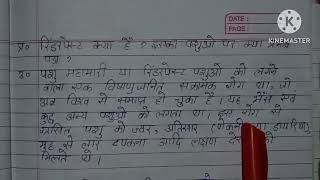 DATE :
PAGE :
KINEMASTER
प्र० रिंडरपेस्ट क्या है ? इसका पशुओं पर क्या
पड़ा ?
उ० पशु महामारी या रिंडरपेस्ट पशुओं को लगने
वाला एक विषाणुजनित संक्रामक रोग था, जो
अब विश्व से समाप्त हो चुका है। यह भैंस एवं
कुछ अन्य पशुओं को लगता था। इस रोग से
पशु को ज्वर, अतिसार
मुंह से लार टपकना आदि लक्षण को
मिलते थे।